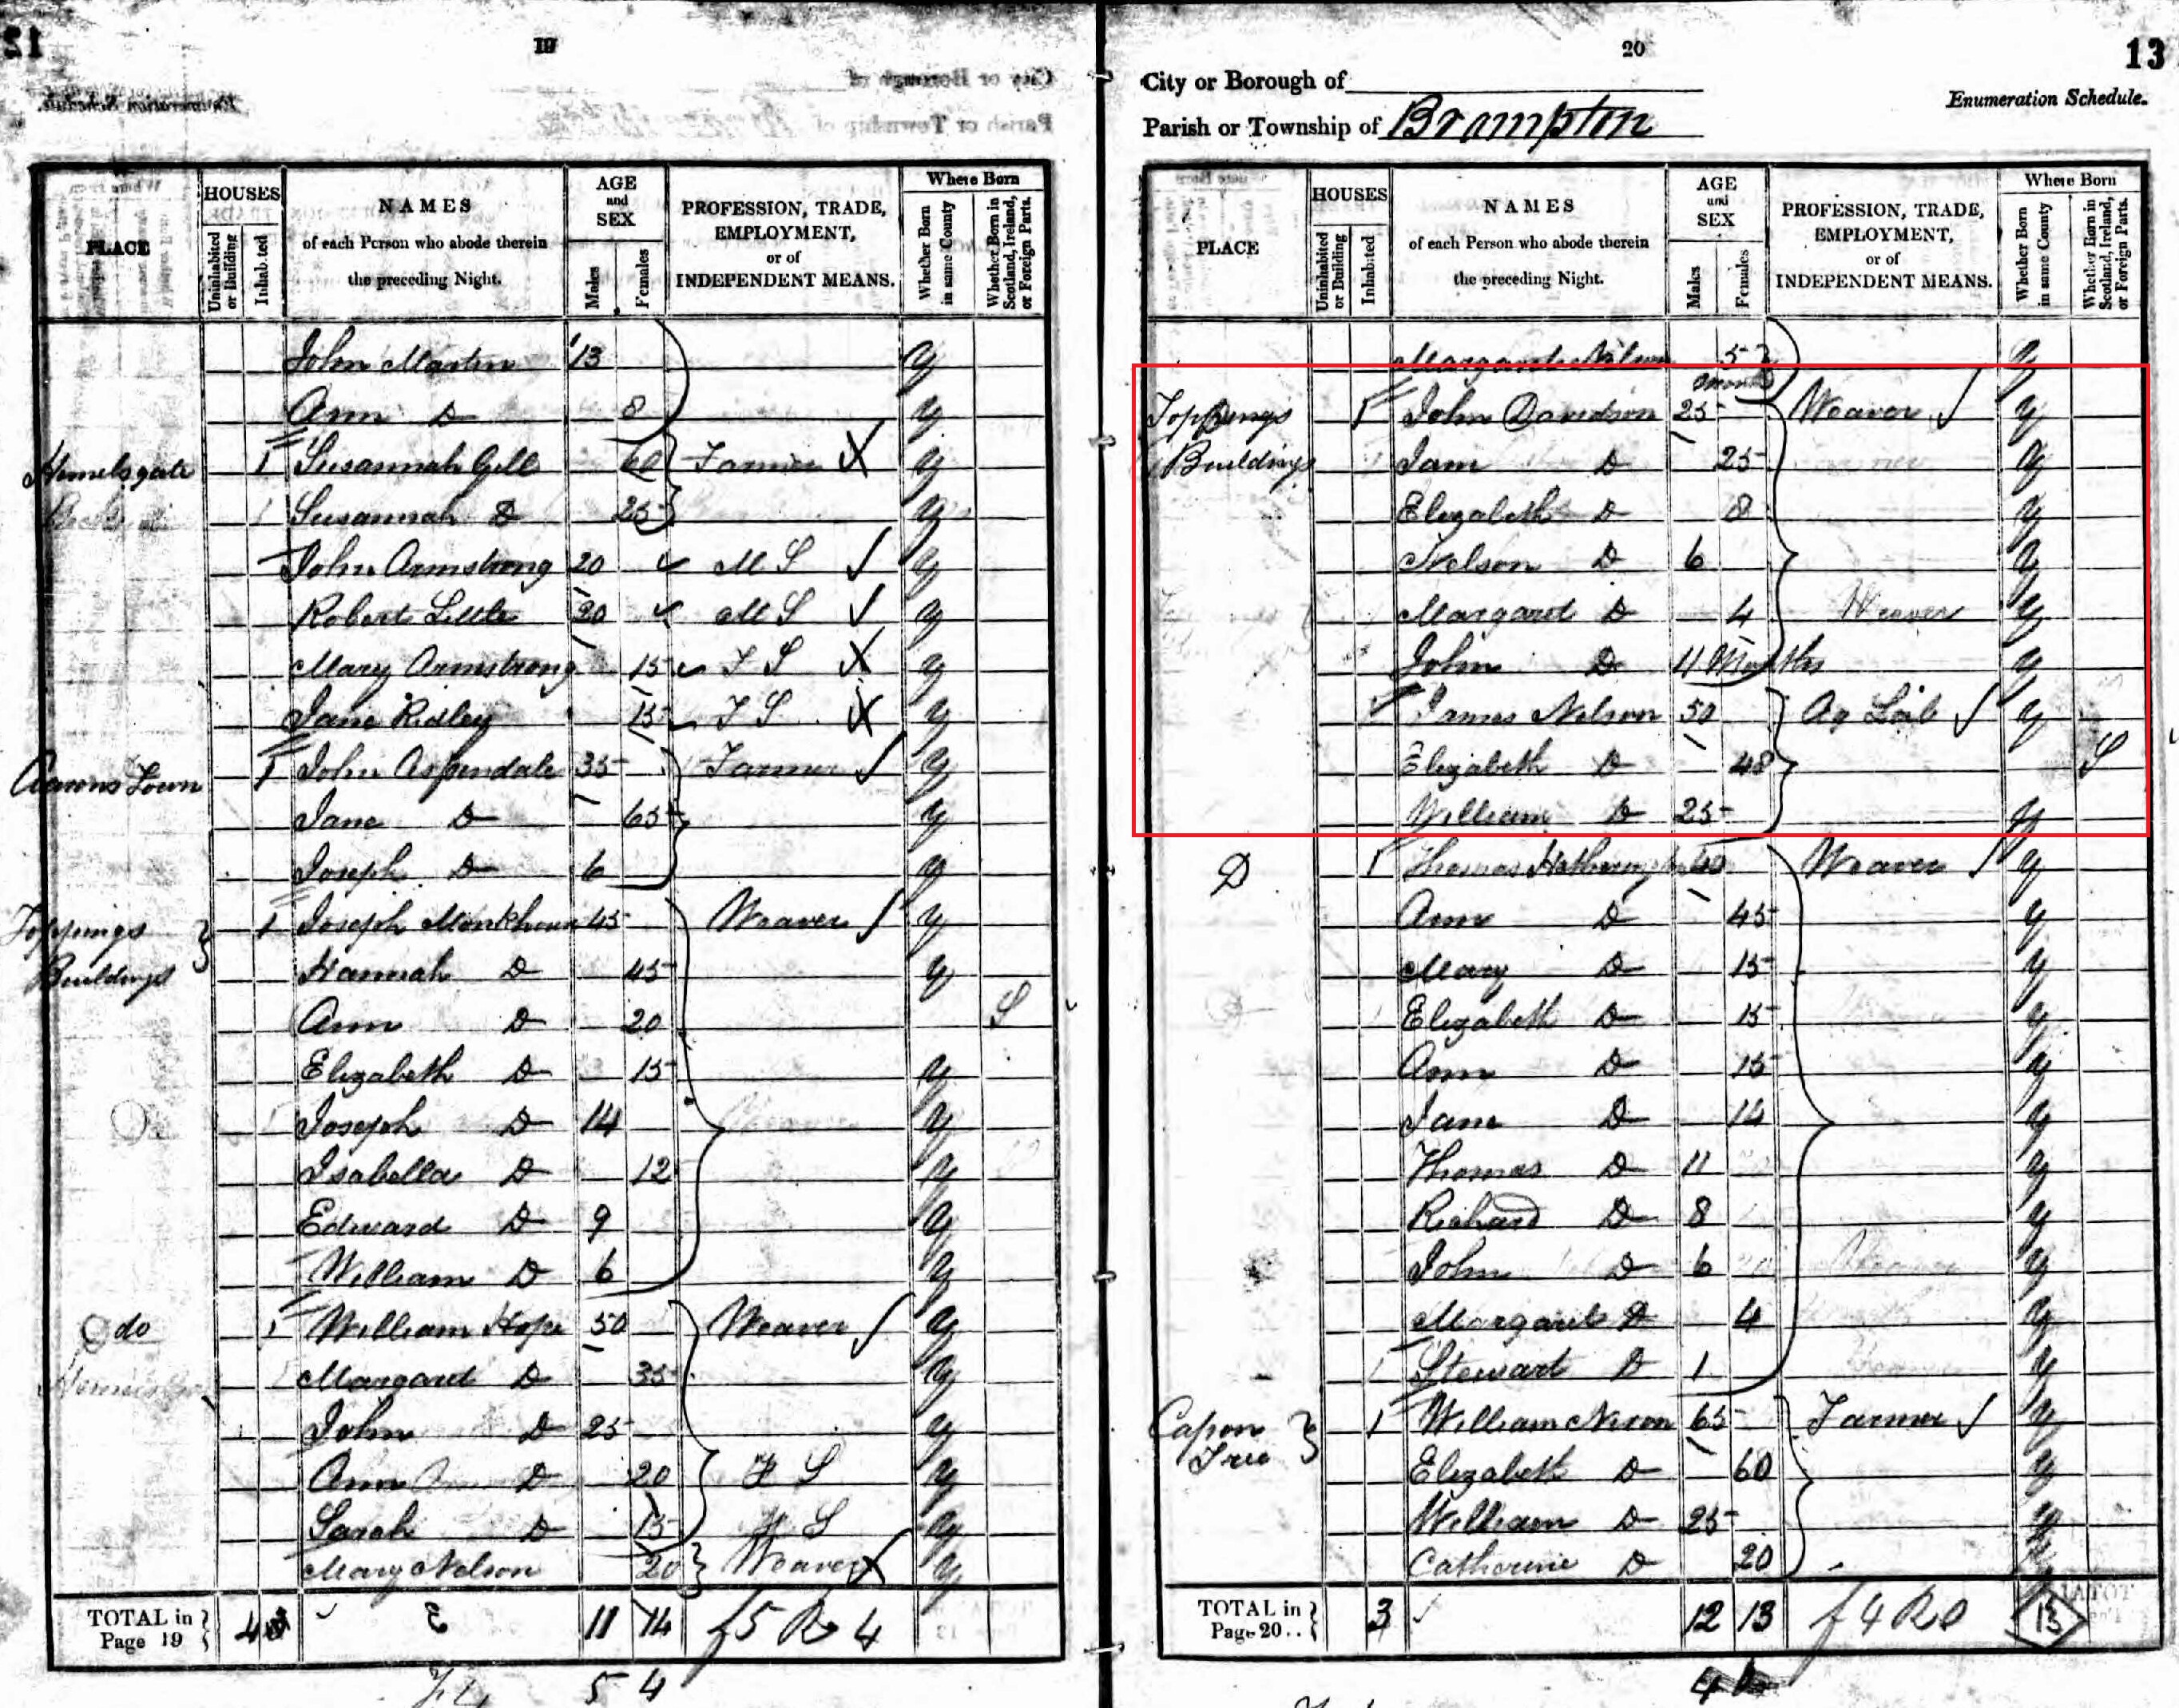 12
19
City or Borough of
Parish or Township of
Enumeration Schedule.
PLACE
HOUSES
Uninhabited or Building
Inhabited
NAMES
of each Person who abode therein
the preceding Night.
AGE
and
SEX
Males
Females
PROFESSION, TRADE,
EMPLOYMENT,
or of
INDEPENDENT MEANS.
Where Born
Whether Born in same County
Whether Born in Scotland, Ireland, or Foreign Parts.
John Martin 13 y
Ann D 8 y
1 Susannah Gill 60 Farmer X y
Susannah D 25 y
John Armstrong 20 M S y
Robert Little 20 M S y
Mary Armstrong 15 F S X y
Jane Ridley 15 F S X y
Aarons Town 1 John 35 Farmer y
Jane D 65 y
Joseph D 6 y
Toppings 1 Joseph Monkhouse 45 Weaver y
Buildings Hannah D 45 y
Ann D 20 S
Elizabeth D 15 y
Joseph D 14 y
Isabella D 12 y
Edward D 9 y
William D 6 y
do 1 William Hope 50 Weaver y
Margaret D 35 y
John D 25 y
Ann D 20 F S y
Sarah D 15 F S y
Mary Nelson 20 Weaver X y
TOTAL in Page 19 4 11 14
5 4
20
13
City or Borough of
Enumeration Schedule.
Parish or Township of Brampton
PLACE
HOUSES
Uninhabited or Building
Inhabited
NAMES
of each Person who abode therein
the preceding Night.
AGE
and
SEX
Males
Females
PROFESSION, TRADE,
EMPLOYMENT,
or of
INDEPENDENT MEANS.
Where Born
Whether Born in same County
Whether Born in Scotland, Ireland, or Foreign Parts.
Margaret Nelson 5 months y
Toppings 1 John Davidson 25 Weaver y
Buildings Jane D 25 y
Elizabeth D 8 y
Nelson D 6 y
Margaret D 4 y
John D 11 Months y
James Nelson 50 Ag Lab y
Elizabeth D 48 S
William D 25 y
D 1 Thomas Hetherington 40 Weaver y
Ann D 45 y
Mary D 15 y
Elizabeth D 15 y
Ann D 15 y
Jane D 14 y
Thomas D 11 y
Richard D 8 y
John D 6 y
Margaret D 4 y
Stewart D 1 y
Capon 1 William Nixon 65 Farmer y
Tree Elizabeth D 60 y
William D 25 y
Catherine D 20 y
TOTAL in Page 20.. 3 12 13
13